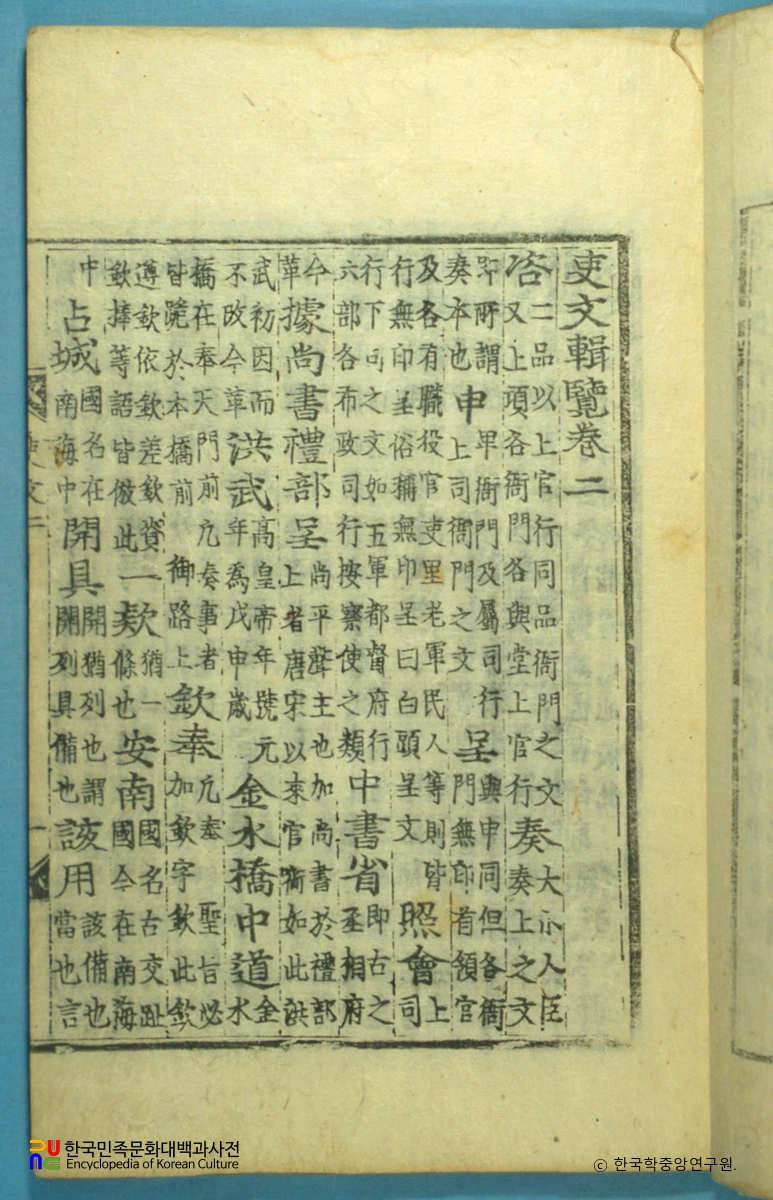 吏文輯覽卷二
咨
二品以上官行同品衙門之文
又上項各衙門各與堂上官行
奏
大小人臣
奏上之文
即所謂
奏本也
申
卑衙門及屬司行
上司衙門之文
呈
與申同但各衙
門無印首領官
及各有職役官吏里老軍民人等則皆
行無印呈俗稱無印呈曰白頭呈文
照會
上
司
行下司之文如五軍都督府行
六部各布政司行按察使之類
中書省
即古之
丞相府
今
革
據尚書禮部呈
尚平聲主也加尚書於禮部
上者唐宋以來官銜如此洪
武初因而
不改今革
洪武
高皇帝年號元
年爲戊申歲
金水橋中道
金
水
橋在奉天門前凡奏事者
皆跪於本橋前 御路上
欽奉
凡奉 聖旨必
加欽字欽此欽
遵欽依欽差欽賫
欽捧等語皆倣此
一欵
猶一
條也
安南
國名古交趾
國今在南海
中
占城
國名在
南海中
開具
開猶列也謂
開列具備也
該用
該備也
當也言
吏文二
一
한국민족문화대백과사전
Encyclopedia of Korean Culture
© 한국학중앙연구원.